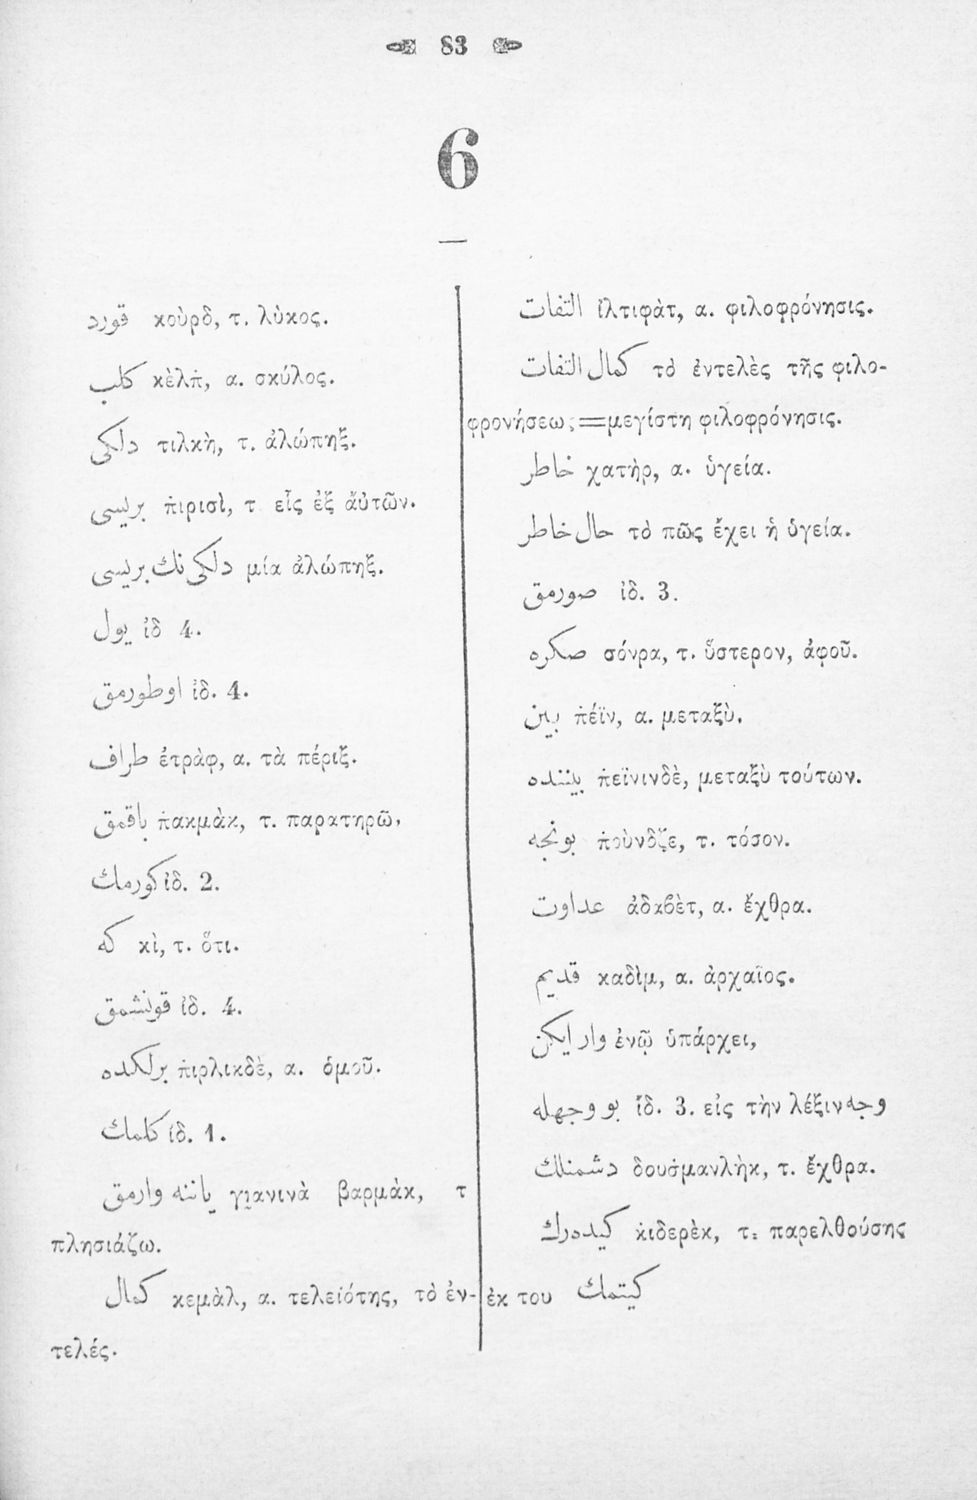 83
6
قورد κοὺρδ, τ. λύκος.
كلب κὲλπ̇, α. σκύλος.
دلكی τιλκὴ, τ. ἀλώπηξ.
بریسی π̇ιρισὶ, τ εἷς ἐξ αὐτῶν.
دلكی نك بریسی μία ἀλώπηξ.
یول ἰδ 4.
اوطورمق ἰδ. 4.
طراف ἐτρὰφ, α. τὰ πέριξ.
باقمق π̇ακμὰκ, τ. παρατηρῶ,
كورمك ἰδ. 2.
كه κὶ, τ. ὅτι.
قونشمق ἰδ. 4.
برلكده π̇ιρλικδὲ, α. ὁμοῦ.
كلمك ἰδ. 1.
یاننه وارمق γιανινὰ βαρμὰκ, τ
πλησιάζω.
كمال κεμὰλ, α. τελειότης, τὸ ἐν-
τελές.
التفات ἰλτιφὰτ, α. φιλοφρόνησις.
كمال التفات τὸ ἐντελὲς τῆς φιλο-
φρονήσεως=μεγίστη φιλοφρόνησις.
خاطر χατὴρ, α. ὑγεία.
حال خاطر τὸ πῶς ἔχει ἡ ὑγεία.
صورمق ἰδ. 3.
صكره σόνρα, τ. ὕστερον, ἀφοῦ.
بین π̇έϊν, α. μεταξὺ.
بیننده π̇εϊνινδὲ, μεταξὺ τούτων.
بونجه π̇οὺνδζε, τ. τόσον.
عداوت ἀδαβὲτ, α. ἔχθρα.
قدیم καδὶμ, α. ἀρχαῖος.
وار ایكن ἐνῷ ὑπάρχει,
بو وجهله ἰδ. 3. εἰς τὴν λέξιν وجه
دشمنلك δουσ̇μανλὴκ, τ. ἔχθρα.
كیده‌رك κ̇ιδερὲκ, τ. παρελθούσης
ἐκ του كیتمك